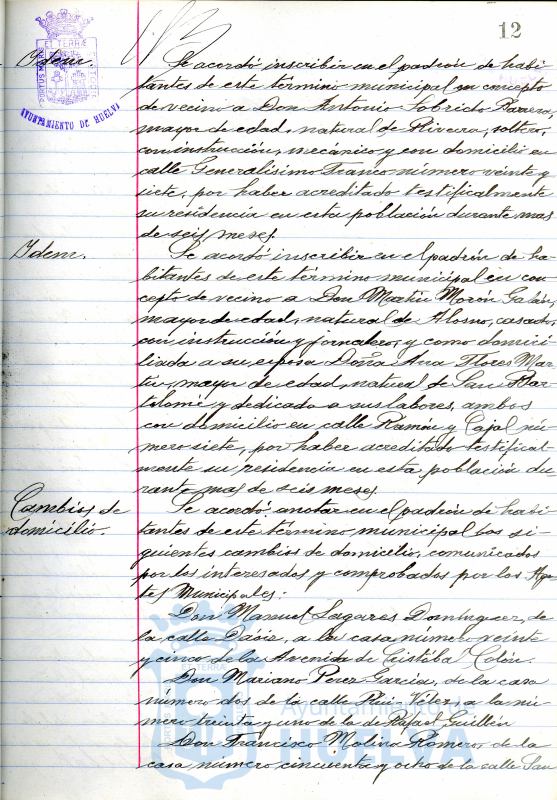 12
PORTUS MARIS ET TERRÆ CUSTODIA
AYUNTAMIENTO DE HUELVA
Idem.
Se acordó inscribir en el padrón de habi
tantes de este término municipal en concepto
de vecino a Don Antonio Sobrido
mayor de edad, natural de Riveira, soltero,
con instrucción, mecánico y con domicilio en
calle Generalísimo Franco número veinte y
siete, por haber acreditado testificalmente
su residencia en esta población durante mas
de seis meses.
Idem.
Se acordó inscribir en el padrón de ha-
bitantes de este término municipal en con
cepto de vecino a Don Martín Morón Galán,
mayor de edad, natural de Alosno, casado,
con instrucción y jornalero, y como domici
liada a su esposa Doña Ana Flores Mar
tín, mayor de edad, natural de San Bar
tolomé y dedicado a sus labores, ambos
con domicilio en calle Ramón y Cajal nú
mero siete, por haber acreditado testifical-
mente su residencia en esta población du
rante mas de seis meses.
Cambios de
domicilio.
Se acordó anotar en el padrón de habi
tantes de este término municipal los si-
guientes cambios de domicilio, comunicados
por los interesados y comprobados por los Agen
tes Municipales:
Don Manuel Lagares Domínguez, de
la calle a la casa número veinte
y cinco de la Avenida de Cristóbal Colón.
Don Mariano Perez Garcia, de la casa
número dos de la calle Rui Vélez, a la nú
mero treinta y uno de la de Rafael Guillén
Don Francisco Molina Romero, de la
casa número cincuenta y ocho de la calle San
Ayuntamiento de
HUELVA